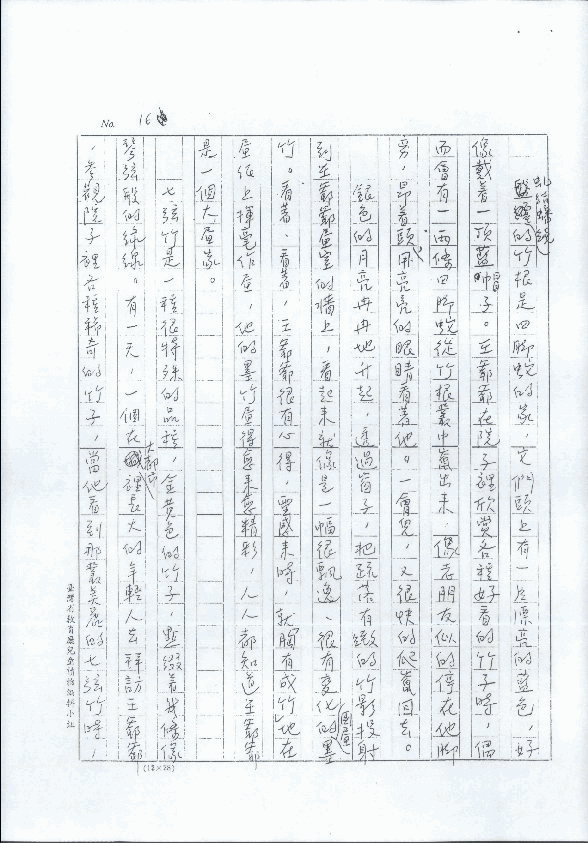 No. 16
虬結蟠錯
的竹根是四脚蛇的家，它們頭上有一点漂亮的蓝色，好
像戴着一頂蓝帽子。王爺爺在院子裡欣赏各種好看的竹子時，偶
而會有一两條四脚蛇從竹根叢中竄出来，像老朋友似的停在他脚
旁，昂着頭，用亮亮的眼睛看著他。一會兒，又很快的爬竄回去。
銀色的月亮冉冉地升起，透過窗子，把疏落有緻的竹影投射
到王爺爺画室的墙上，看起来就像是一幅很飄逸、很有变化的墨
國画
竹。看着、看着，王爺爺很有心得，靈感来時，就胸有成竹地在
画纸上揮毫作画，他的墨竹画得愈来愈精彩，人人都知道王爺爺
是一個大画家。
七弦竹是一種很特殊的品種，金黄色的竹子，點綴着幾條像
琴弦般的綠線。有一天，一個在大都市裡長大的年輕人去拜訪王爺爺
，参觀院子裡各種稀奇的竹子，當他看到那叢美麗的七弦竹時，
臺灣省教育廳兒童讀物編輯小組
(12×28)